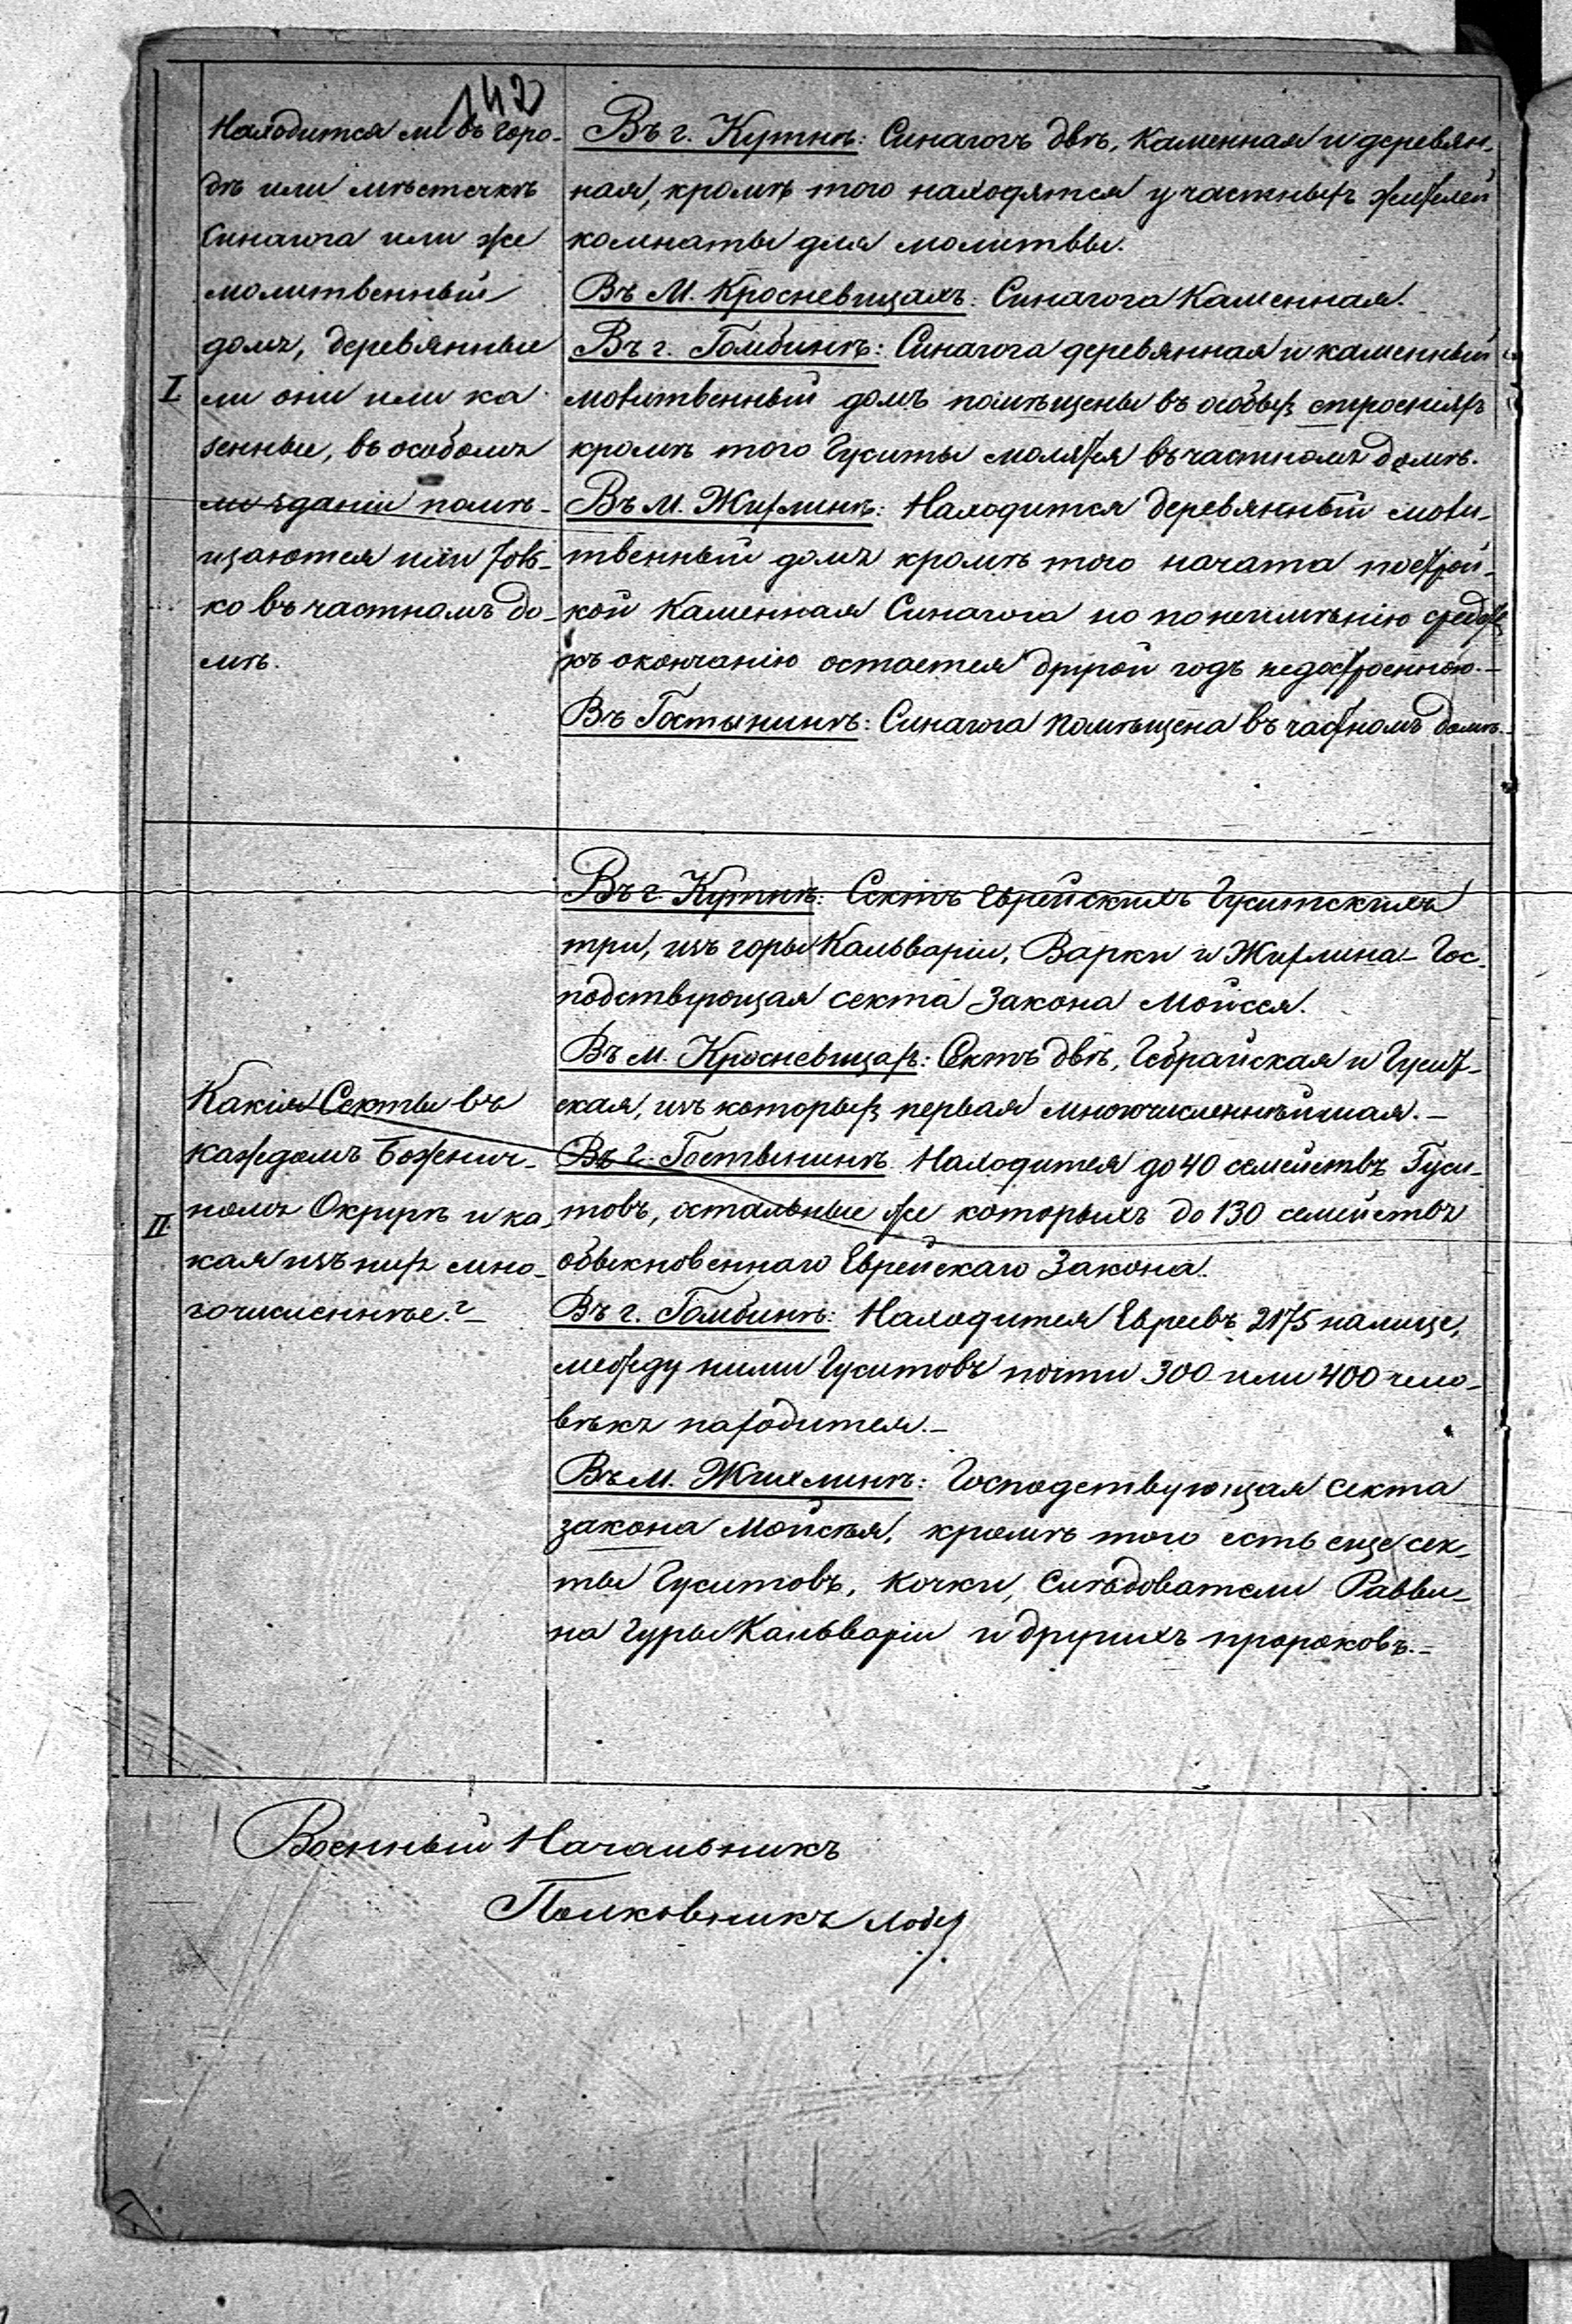 142
Находится ли въ горо-
дѣ или мѣстечкѣ
Синагога или же
молитвенный
домъ, деревянные
I
ли они или ка-
менные, въ особомъ
ли зданіи помѣ-
щаются или толь-
ко въ частномъ до-
мѣ.
Въ г. Кутнѣ: Синагогъ двѣ, Каменная и деревян-
ная, кромѣ того находятся у частныхъ жителей
комнаты для молитвы.
Въ М. Кросневицахъ: Синагога Каменная.
Въ г. Гомбинѣ: Синагога деревянная и каменный
молитвенный домъ помѣщены въ особыхъ строеніяхъ
кромѣ того Гуситы молятся въ частномъ домѣ.
Въ М. Жихлинѣ: Находится деревянный моли-
твенный домъ кромѣ того начата построй-
кой Каменная Синагога но по неимѣнію средствъ
къ окончанію остается другой годъ недостроенною.-
Въ Гостынинѣ: Синагога помѣщена въ частномъ домѣ.-
II
Какія Секты въ
каждомъ Божнич-
номъ Округѣ и ка-
кая изъ нихъ мно-
гочисленнѣе?-
Въ г. Кутнѣ: Сектъ Еврейскихъ Гуситскихъ
три, изъ горы Кальваріи, Варки и Жихлина - Гос-
подствующая секта Закона Мойсея.
Въ м. Кросневицахъ: Сектъ двѣ, Гебрайская и Гусит-
ская, изъ которыхъ первая многочисленнѣйшая.-
Въ г. Гостынинѣ Находится до 40 семействъ Гуси-
товъ, остальные же которыхъ до 130 семействъ
обыкновеннаго Еврейскаго Закона.
Въ г. Гомбинѣ: Находится Евреевъ 2175 на лице,
между ними Гуситовъ почти 300 или 400 чело-
вѣкъ находится.-
Въ М. Жихлинѣ: Господствующая секта
закона Мойсѣя, кромѣ того есть еще сек-
ты Гуситовъ, Кочки, Слѣдователи Равви-
на Гуры Кальваріи и другихъ пророковъ.-
Военный Начальникъ
Полковникъ